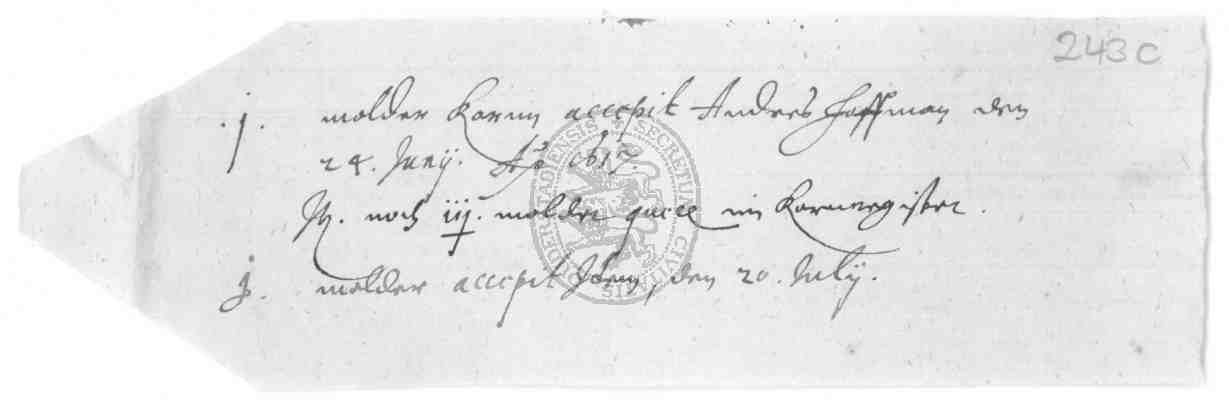 243c
.j. molder Korun accepit Andres Hoffman den
24. Junÿ. Aō 1617.
noch iiij. molder im Kornregister.
j. molder accepit Idem, den 20. Julÿ.
SECRETUM CIVITATIS